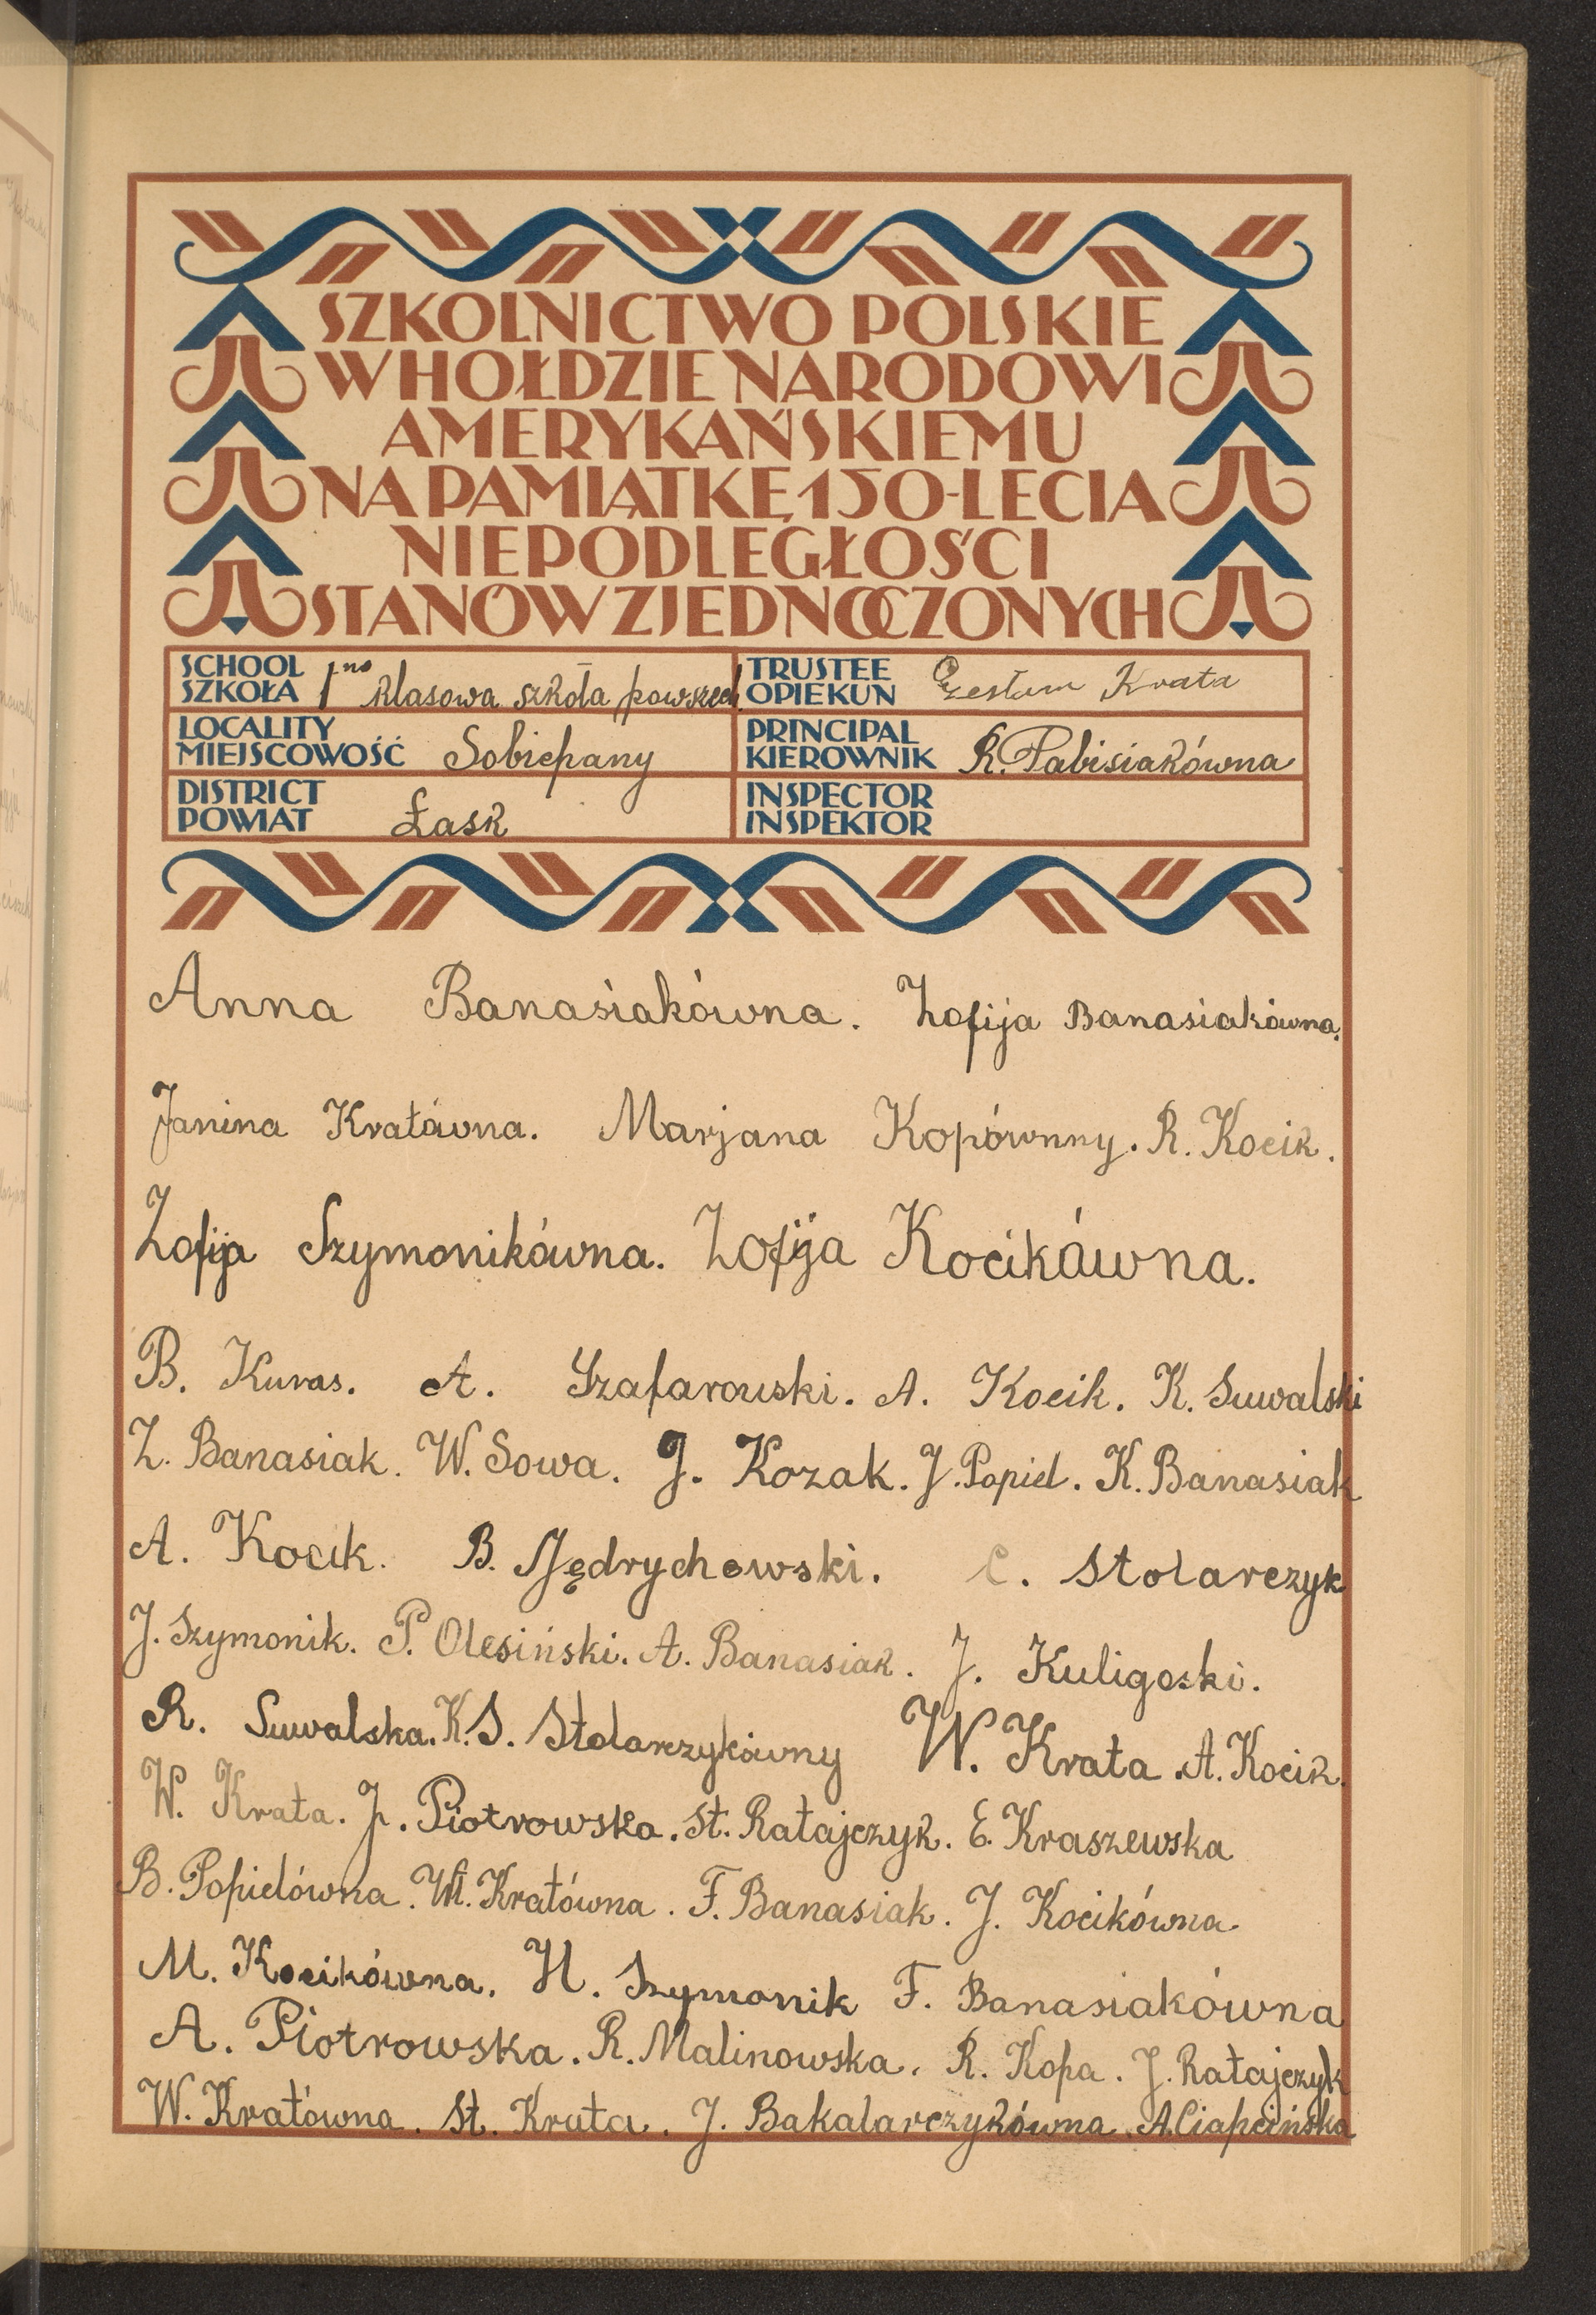 SZKOLNICTWO POLSKIE
W HOŁDZIE NARODOWI
AMERYKAŃSKIEMU
NA PAMIĄTKĘ 150-LECIA
NIEPODLEGŁOŚCI
STANÓW ZJEDNOCZONYCH
SCHOOL
SZKOŁA 1no klasowa szkoła powszech.
TRUSTEE
OPIEKUN Czesław Krata
LOCALITY
MIEJSCOWOŚĆ Sobiepany
PRINCIPAL
KIEROWNIK R. Pabisiakówna
DISTRICT
POWIAT Łask
INSPECTOR
INSPEKTOR
Anna Banasiakówna. Zofija Banasiakówna.
Janina Kratówna. Marjana Kopównny. R. Kocik.
Zofija Szymonikówna. Zofija Kocikówna.
B. Kuras. A. Szafarowski. A. Kocik. K. Suwalski
Z. Banasiak. W. Sowa. J. Kozak. J. Popiel. K. Banasiak
A. Kocik. B. Jędrychowski. C. Stolarczyk
J. Szymonik. P. Olesiński. A. Banasiak. J. Kuligoski.
R. Suwalska. K. S. Stolarczykówny W. Krata. A. Kocik.
W. Krata. J. Piotrowska. St. Ratajczyk. E. Kraszewska
B. Popielówna. Wł. Kratówna. F. Banasiak. J. Kocikówna.
M. Kocikówna. H. Szymonik F. Banasiakówna
A. Piotrowska. R. Malinowska. R. Kopa. J. Ratajczyk
W. Kratówna. St. Kruta. J. Bakalarczykówna. A. Ciapcińska